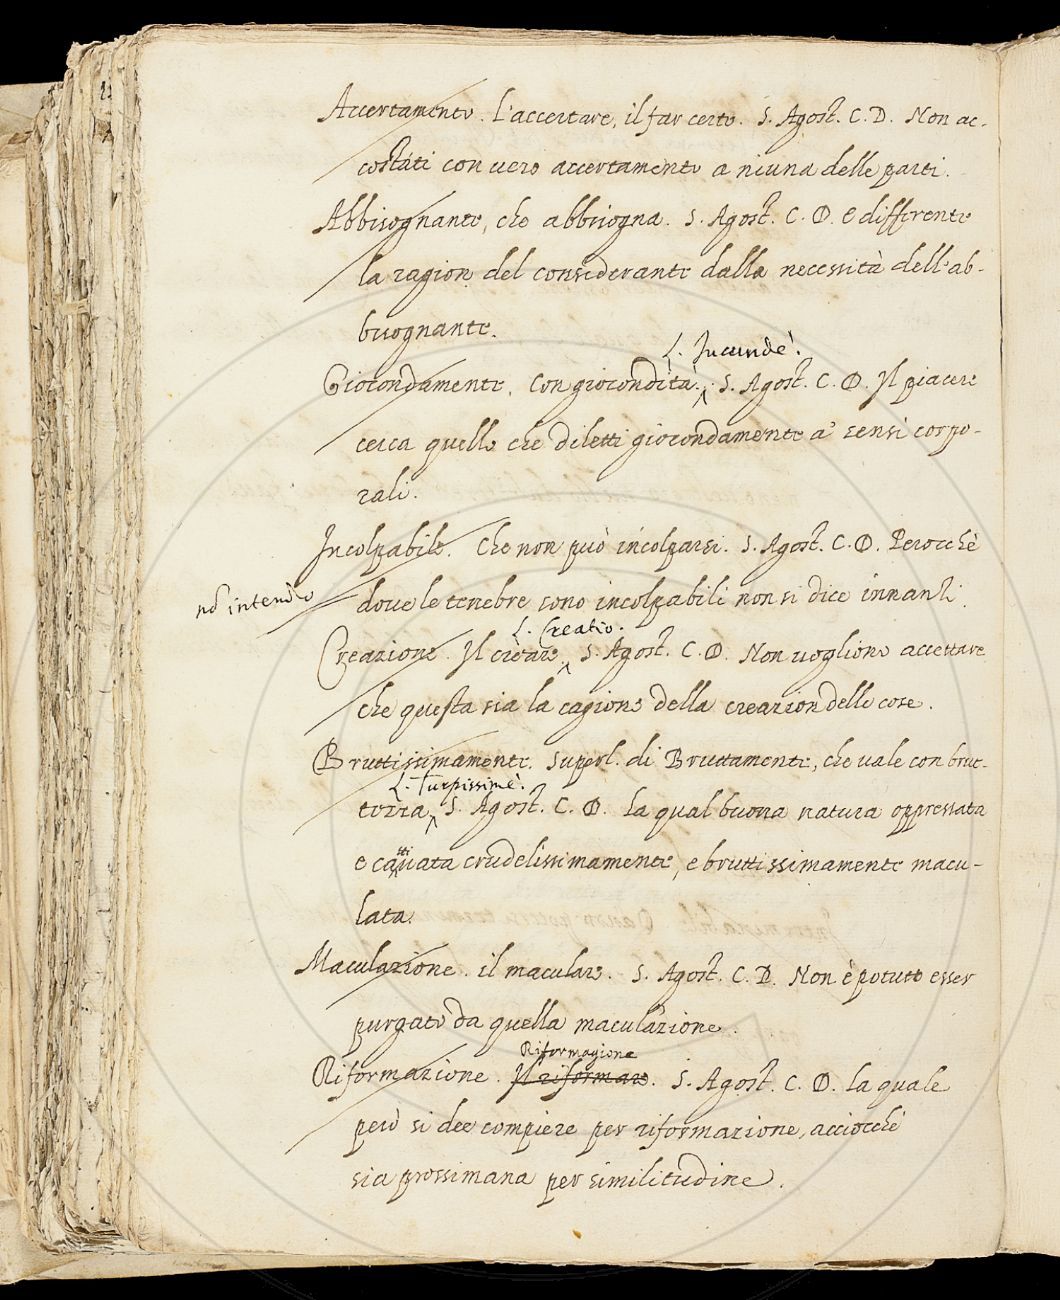 Accertamento. L'accertare, il far certo. S. Agost. C. D. Non ac-
costati con vero accertamento a niuna delle parti.
Abbisognante, che abbisogna. S. Agost. C. D. E differente
la ragion del considerante dalla necessità dell'ab-
bisognante.
L. Jucundè.
Giocondamente. Con giocondità. S. Agost. C. D. Il piacere
cerca quello che diletti giocondamente a' sensi corpo-
rali.
Incolpabile. Che non può incolparsi. S. Agost. C. D. Perocchè
nō intendo dove le tenebre sono incolpabili non si dice innanti.
L. Creatio.
Creazione. Il creare. S. Agost. C. D. Non vogliono accettare
che questa sia la cagione della creazion delle cose.
Bruttissimamente. Superl. di Bruttamente, che vale con brut-
L. Turpissimè.
tezza. S. Agost. C. D. La qual buona natura oppressata
tti
e cavata crudelissimamente, e bruttissimamente macu-
lata.
Maculazione. il maculare. S. Agost. C. D. Non è potuto esser
purgato da quella maculazione.
Riformagione
Riformazione. Il riformare. S. Agost. C. D. La quale
però si dee compiere per riformazione, acciocchè
sia prossimana per similitudine.